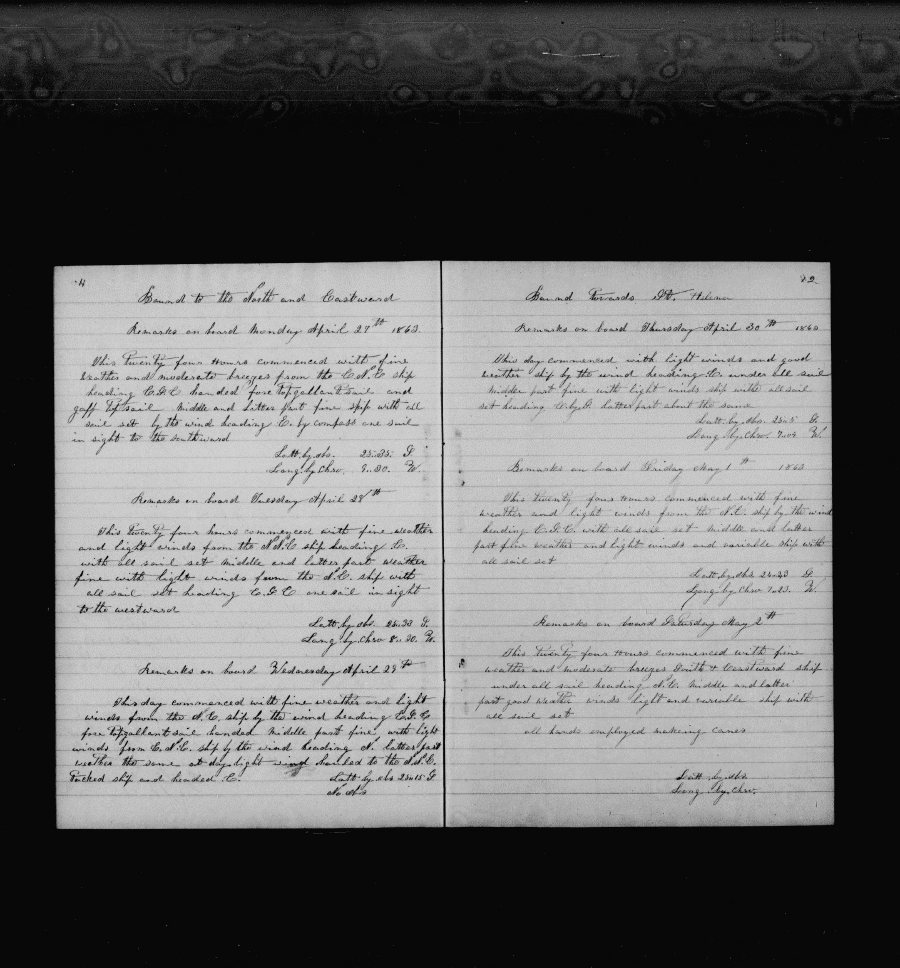 Bound to the North and Eastward
Remarks on board Monday April 27th 1863.
This Twenty four Hours commenced with fine
weather and moderate breezes from the E.N.E ship
heading E.S.E handed fore topgallant sail and
gaff top sail Middle and latter part fine ship with all
sail set by the wind heading E. by compass one sail
in sight to the southward
Latt. by obs. 25:35: S.
Long. by Chro. 9..30. W.
Remarks on board Tuesday April 28th
This twenty four hours commenced with fine weather
and light winds from the N.N.E ship heading E.
with all sail set middle and latter part weather
fine with light winds from the N.E. ship with
all sail set heading E.S.E one sail in sight
to the westward
Latt. by obs. 25:33 S.
Long by Chro 8..30. W.
Remarks on board Wednesday April 29th
This day commenced with fine weather and light
winds from the N.E. ship by the wind heading E.S.E
fore topgallant sail handed Middle part fine with light
winds from E.N.E. ship by the wind heading N. latter part
weather the same at day light wind hauled to the N.N.E.
Tacked ship and headed E. Latt. by obs 25..15 S
No Obs
82.
Bound Towards St. Helena
Remarks on board Thursday April 30th 1863
This day commenced with light winds and good
weather ship by the wind heading E. under all sail
middle part fine with light winds ship with all sail
set heading E by S latter part about the same
Latt. by obs. 25..5 S.
Long by Chro. 7..04 W.
Remarks on board Friday May 1th 1863
This twenty four Hours commenced with fine
weather and light winds from the N.E. ship by the wind
heading E.S.E. with all sail set middle and latter
part fine weather and light winds and variable ship with
all sail set
Latt. by obs 24..43 S.
Long. by Chro W.
Remarks on board Saturday May 2th
This twenty four Hours commenced with fine
weather and moderate breezes South & Eastward ship
under all sail heading N.E. middle and latter
part good weather winds light and variable ship with
all sail set
all hands employed making canes
Latt. by obs.
Long. by Chro.